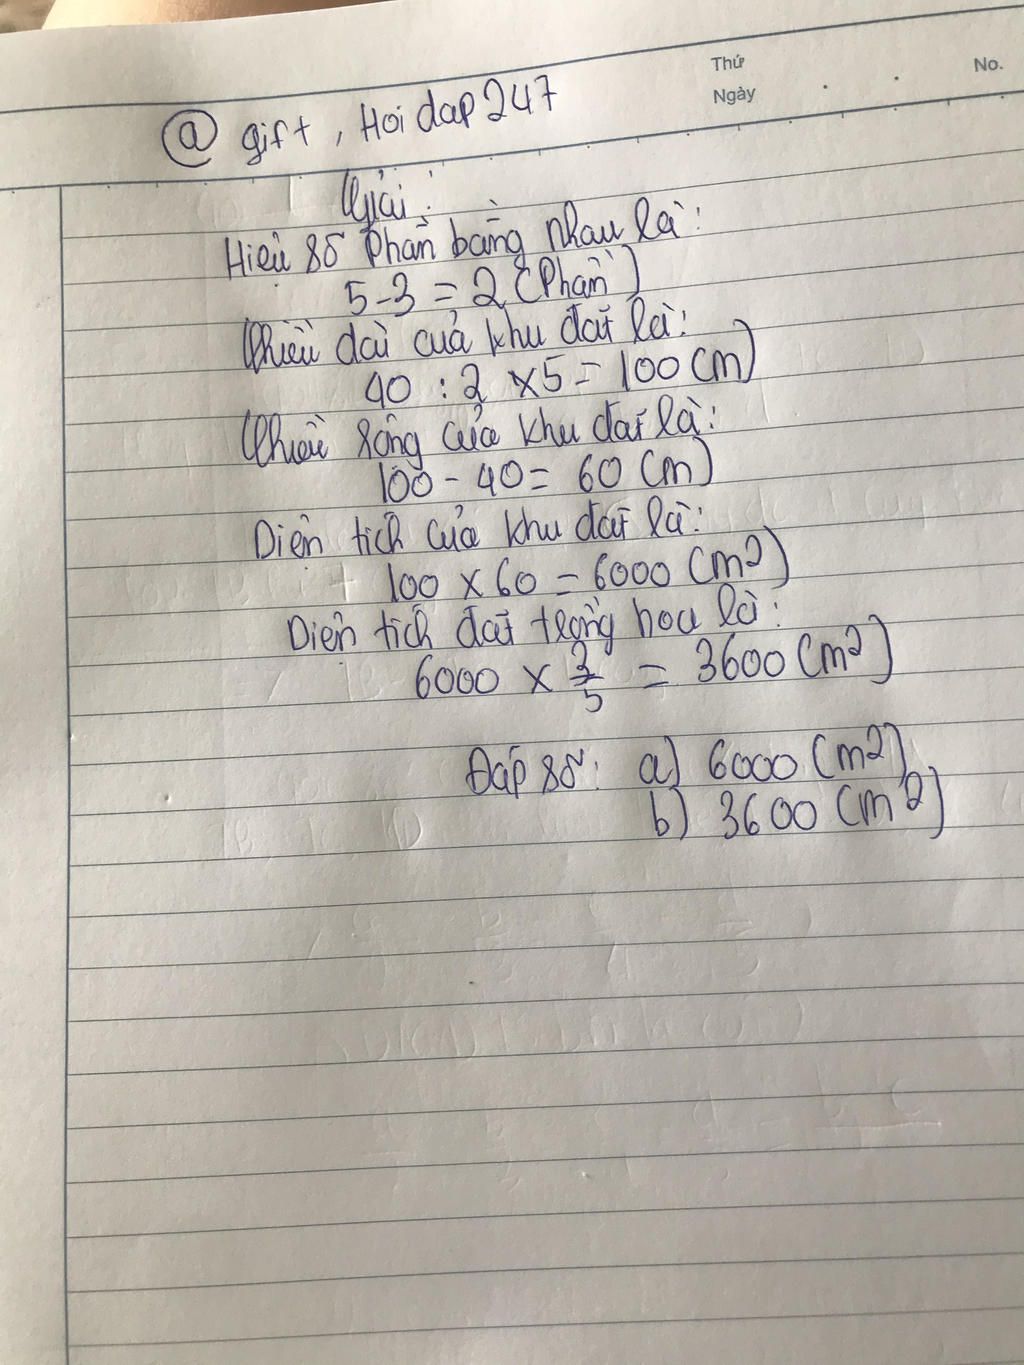 Thứ
No.
Ngày
@ gift, Hoidap247
Giải:
Hiệu số phần bằng nhau là:
5-3 = 2 (Phần)
Chiều dài của khu đất là:
40 : 2 x5 = 100 (m)
Chiều rộng của khu đất là:
100 - 40 = 60 (m)
Diện tích của khu đất là:
100 x 60 = 6000 (m2)
Diện tích đất trồng hoa là:
6000 x 3/5 = 3600 (m2)
Đáp số: a) 6000 (m2)
b) 3600 (m2)